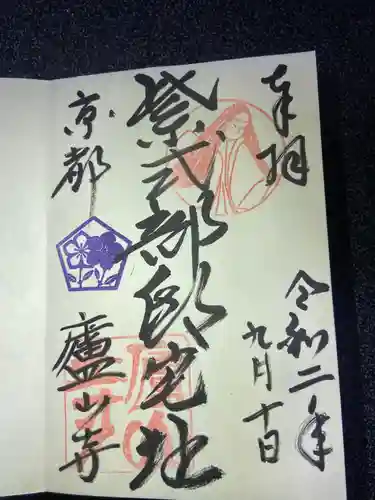 奉拝
令和二年
九月十日
紫式部邸宅址
京都
廬山寺